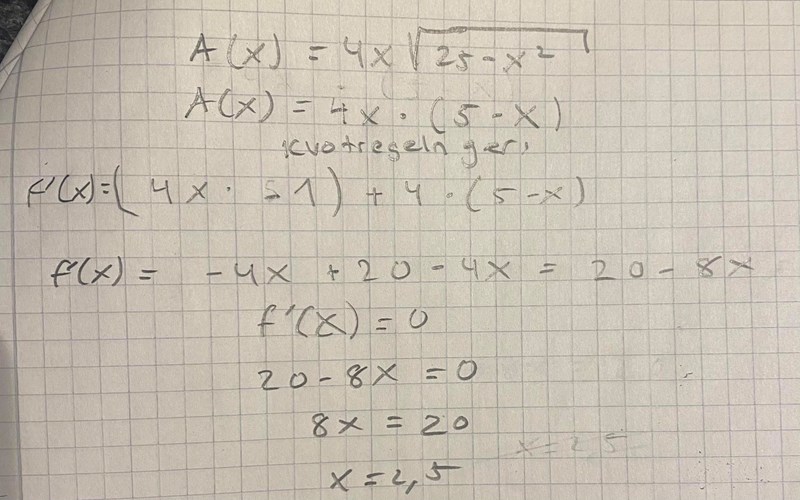 A(x) = 4x √25-x²
A(x) = 4x · (5-x)
Kvotregeln ger,
f'(x)=(4x · -1) + 4 · (5-x)
f'(x) = -4x + 20 - 4x = 20 - 8x
f'(x) = 0
20 - 8x = 0
8x = 20
x = 2,5